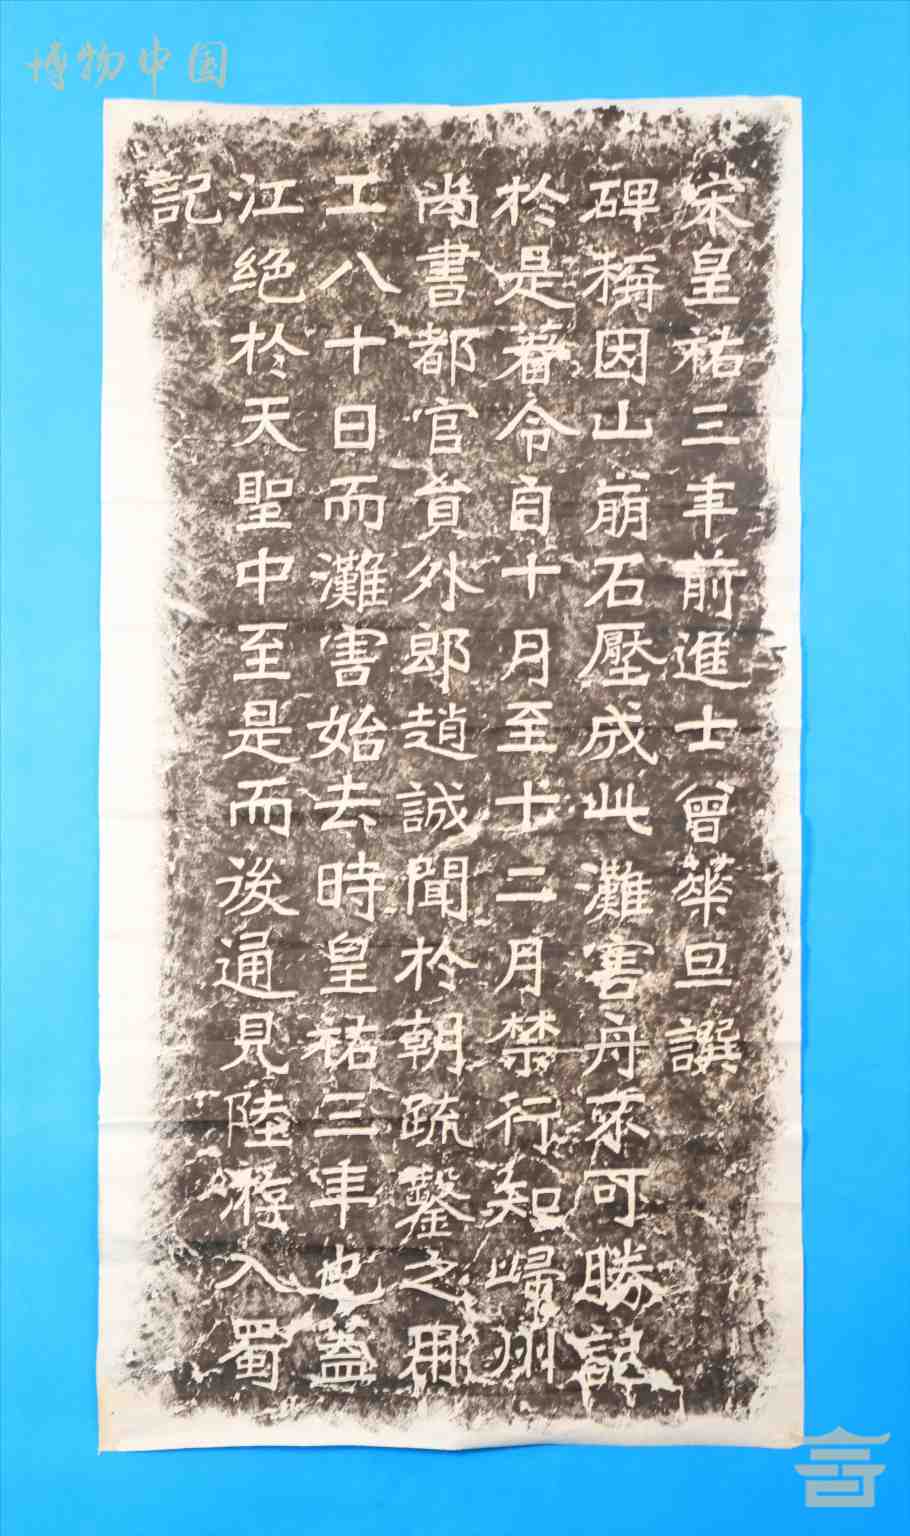 博物中国
宋皇祐三年前進士曾華旦譔
碑稱因山崩石壓成此灘害舟不可勝記
於是著令自十月至十二月禁行知歸州
尚書都官員外郎趙誠聞於朝疏鑿之用
工八十日而灘害始去時皇祐三年也蓋
江绝於天聖中至是而後通見陸游入蜀
記